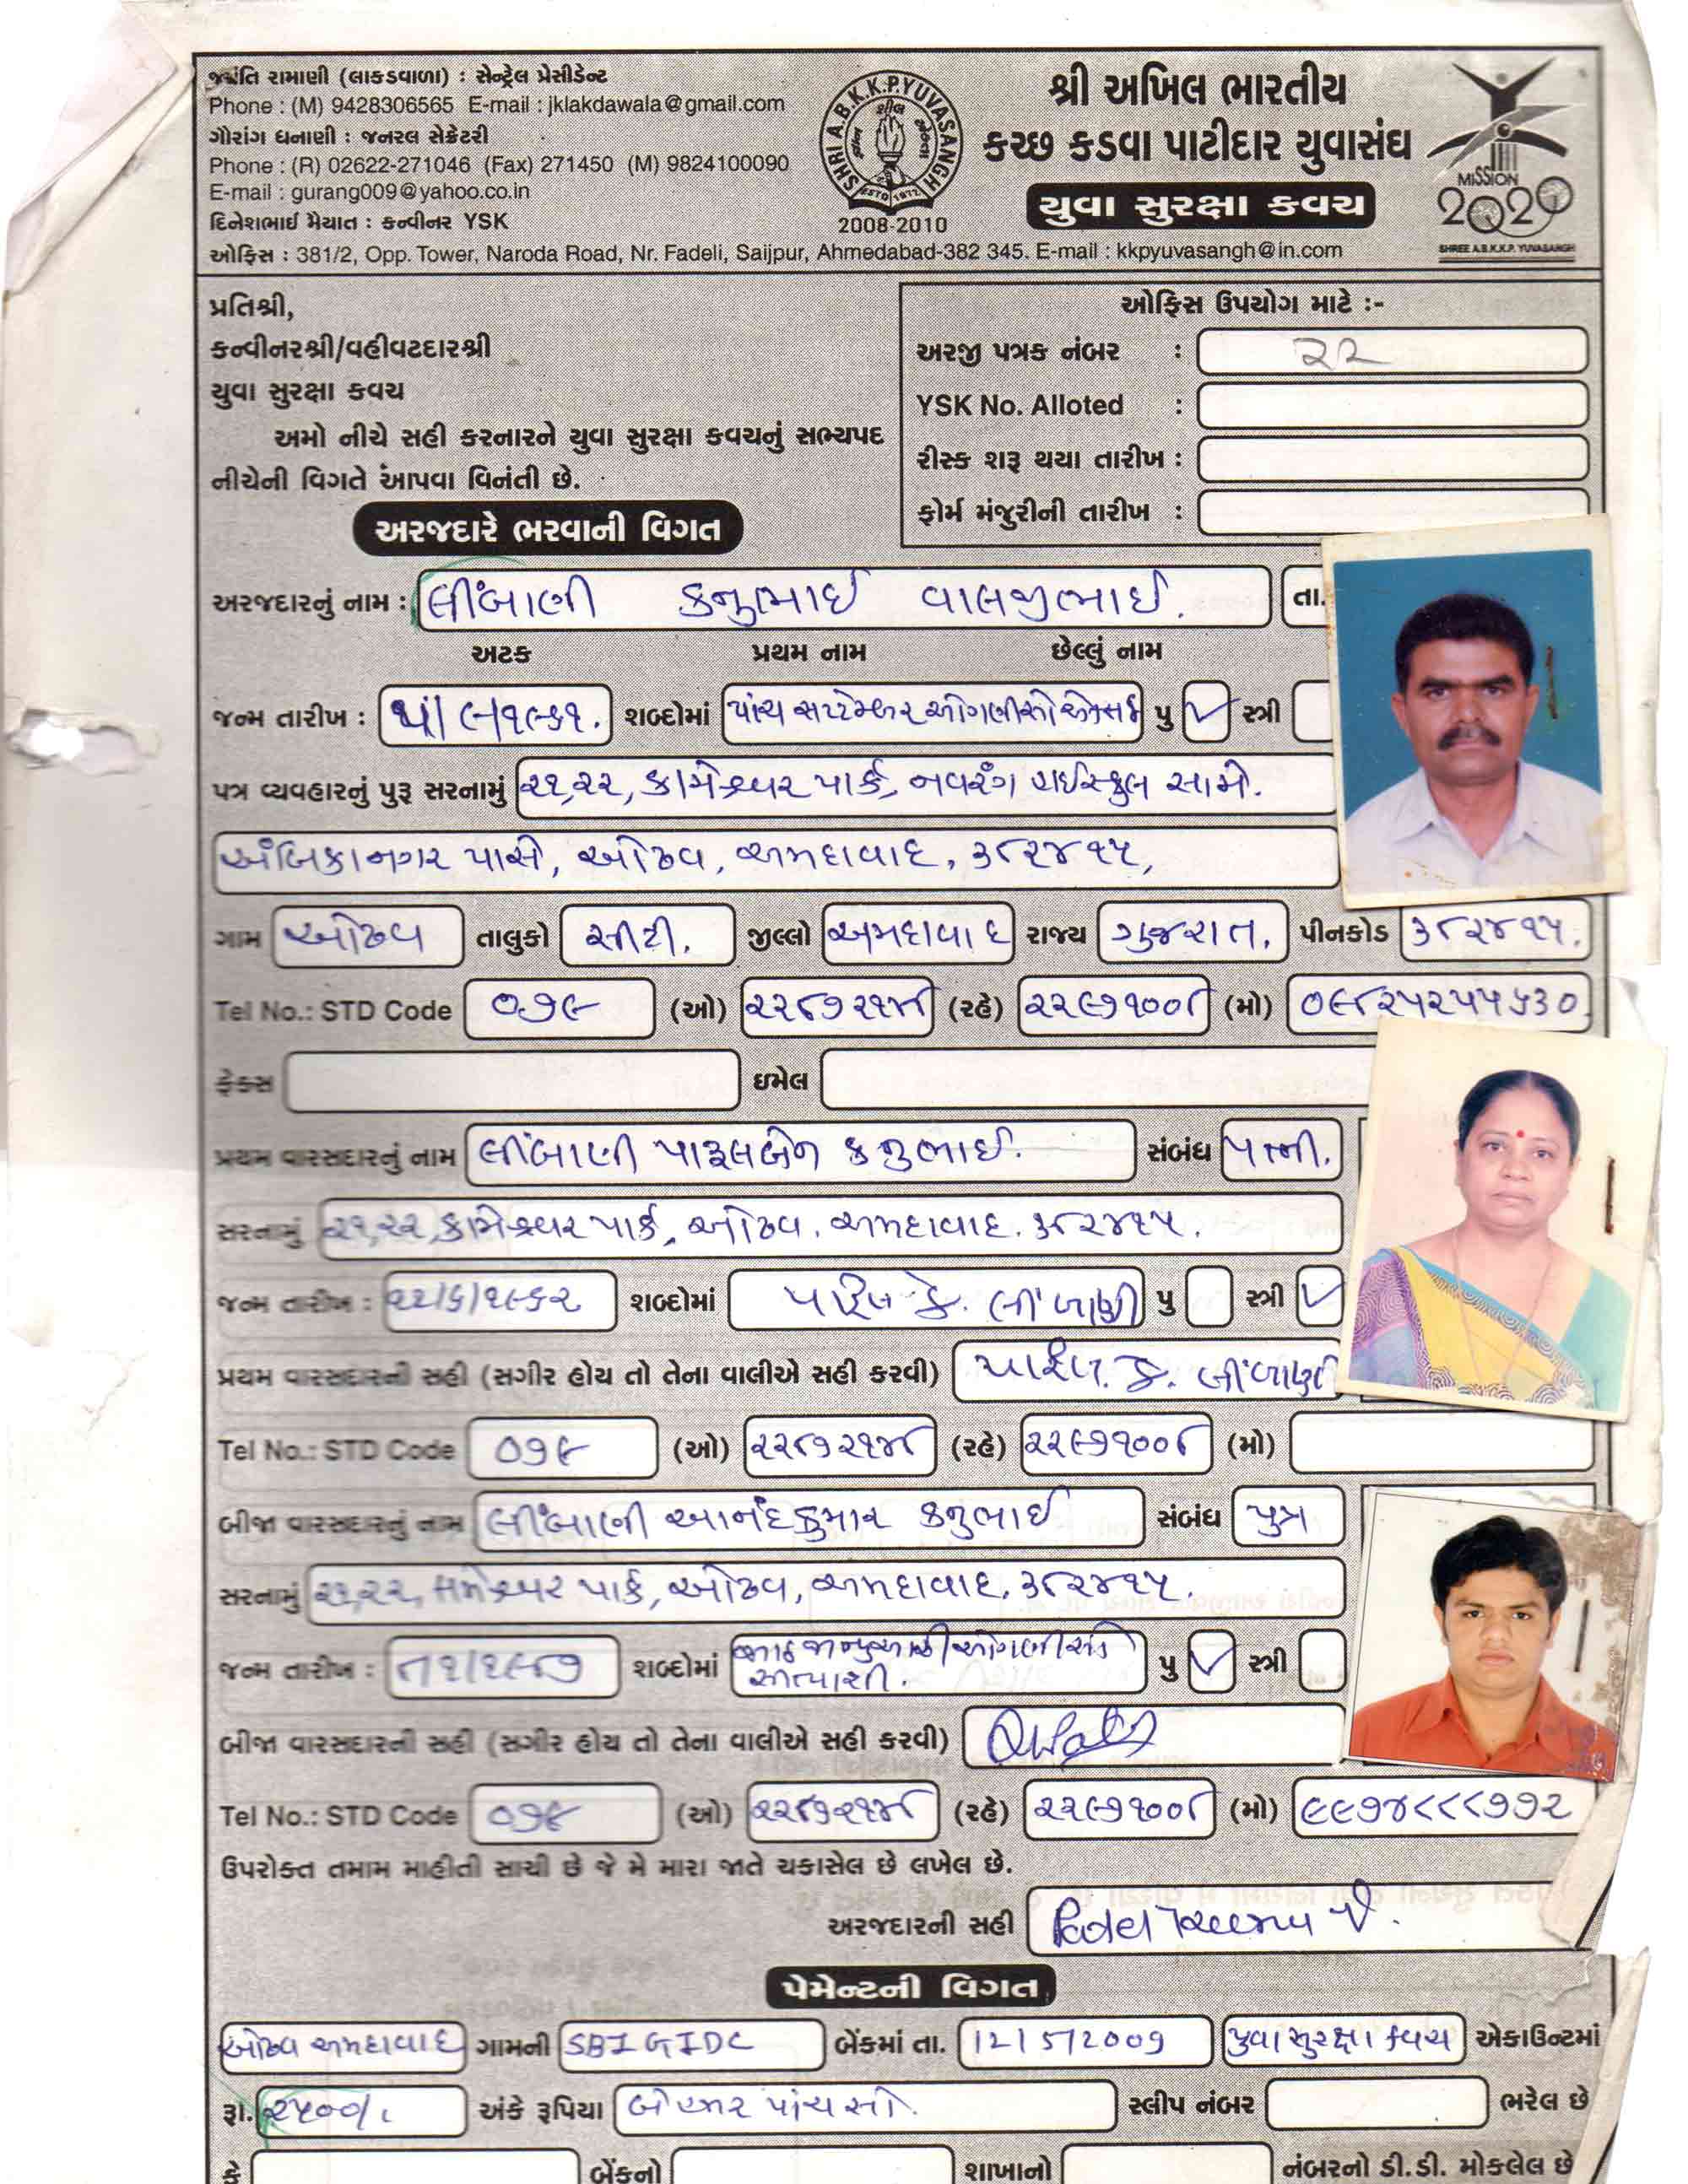 જયંતિ રામાણી (લાકડવાળા) : સેન્ટ્રેલ પ્રેસીડેન્ટ
Phone : (M) 9428306565 E-mail : jklakdawala@gmail.com
ગૌરાંગ ધનાણી : જનરલ સેક્રેટરી
Phone : (R) 02622-271046 (Fax) 271450 (M) 9824100090
E-mail : gurang009@yahoo.co.in
દિનેશભાઈ મૈયાત : કન્વીનર YSK
ઓફિસ : 381/2, Opp. Tower, Naroda Road, Nr. Fadeli, Saijpur, Ahmedabad-382 345. E-mail : kkpyuvasangh@in.com
SHRI A.B.K.K.P. YUVASANGH
ESTD 1972
2008-2010
શ્રી અખિલ ભારતીય
કચ્છ કડવા પાટીદાર યુવાસંઘ
યુવા સુરક્ષા કવચ
MISSION
2020
SHREE A.B.K.K.P. YUVASANGH
પ્રતિશ્રી,
કન્વીનરશ્રી/વહીવટદારશ્રી
યુવા સુરક્ષા કવચ
અમો નીચે સહી કરનારને યુવા સુરક્ષા કવચનું સભ્યપદ
નીચેની વિગતે આપવા વિનંતી છે.
ઓફિસ ઉપયોગ માટે :-
અરજી પત્રક નંબર : ૨૨
YSK No. Alloted :
રીસ્ક શરૂ થયા તારીખ :
ફોર્મ મંજુરીની તારીખ :
અરજદારે ભરવાની વિગત
અરજદારનું નામ : લીંબાણી કનુભાઈ વાલજીભાઈ. તા.
અટક પ્રથમ નામ છેલ્લું નામ
જન્મ તારીખ : શબ્દોમાં પાંચ સપ્ટેમ્બર પુ ✓ સ્ત્રી
પત્ર વ્યવહારનું પુરૂ સરનામું ૨૧,૨૨, કામેશ્વર પાર્ક, નવરંગ હાઈસ્કુલ સામે.
અંબિકાનગર પાસે, ઓઢવ, અમદાવાદ, ૩૮૨૪૧૫,
ગામ ઓઢવ તાલુકો સીટી. જીલ્લો અમદાવાદ રાજ્ય ગુજરાત. પીનકોડ ૩૮૨૪૧૫.
Tel No.: STD Code ૦૭૯ (ઓ) ૨૨૮૭૨૧૪૮ (રહે) ૨૨૯૭૧૦૦૮ (મો) ૦૯૮૨૫૨૫૫૬૩૦
ફેક્સ ઇમેલ
પ્રથમ વારસદારનું નામ લીંબાણી પારૂલબેન કનુભાઈ. સંબંધ પત્ની.
સરનામું ૨૧,૨૨, કામેશ્વર પાર્ક, ઓઢવ. અમદાવાદ. ૩૮૨૪૧૫.
જન્મ તારીખ : ૨૨/૬/૧૯૬૨ શબ્દોમાં પારૂલ કે. લીંબાણી પુ સ્ત્રી ✓
પ્રથમ વારસદારની સહી (સગીર હોય તો તેના વાલીએ સહી કરવી) પારૂલ. કે. લીંબાણી
Tel No.: STD Code ૦૭૯ (ઓ) ૨૨૮૭૨૧૪૮ (રહે) ૨૨૯૭૧૦૦૮ (મો)
બીજા વારસદારનું નામ લીંબાણી આનંદકુમાર કનુભાઈ સંબંધ પુત્ર
સરનામું ૨૧,૨૨, કામેશ્વર પાર્ક, ઓઢવ, અમદાવાદ. ૩૮૨૪૧૫.
જન્મ તારીખ : ૮/૧/૧૯૮૭ શબ્દોમાં આઠ જાન્યુઆરી ઓગણીસો પુ ✓ સ્ત્રી
સત્યાશી.
બીજા વારસદારની સહી (સગીર હોય તો તેના વાલીએ સહી કરવી)
Tel No.: STD Code ૦૭૯ (ઓ) ૨૨૮૭૨૧૪૮ (રહે) ૨૨૯૭૧૦૦૮ (મો)
ઉપરોક્ત તમામ માહીતી સાચી છે જે મે મારા જાતે ચકાસેલ છે લખેલ છે.
અરજદારની સહી
પેમેન્ટની વિગત
ઓઢવ અમદાવાદ ગામની SBI GIDC બેંકમાં તા. 12/5/2009 યુવા સુરક્ષા કવચ એકાઉન્ટમાં
રૂા. ૨૫૦૦/. અંકે રૂપિયા બે હજાર પાંચ સો. સ્લીપ નંબર ભરેલ છે
કે બેંકનો શાખાનો નંબરનો ડી.ડી. મોકલેલ છે